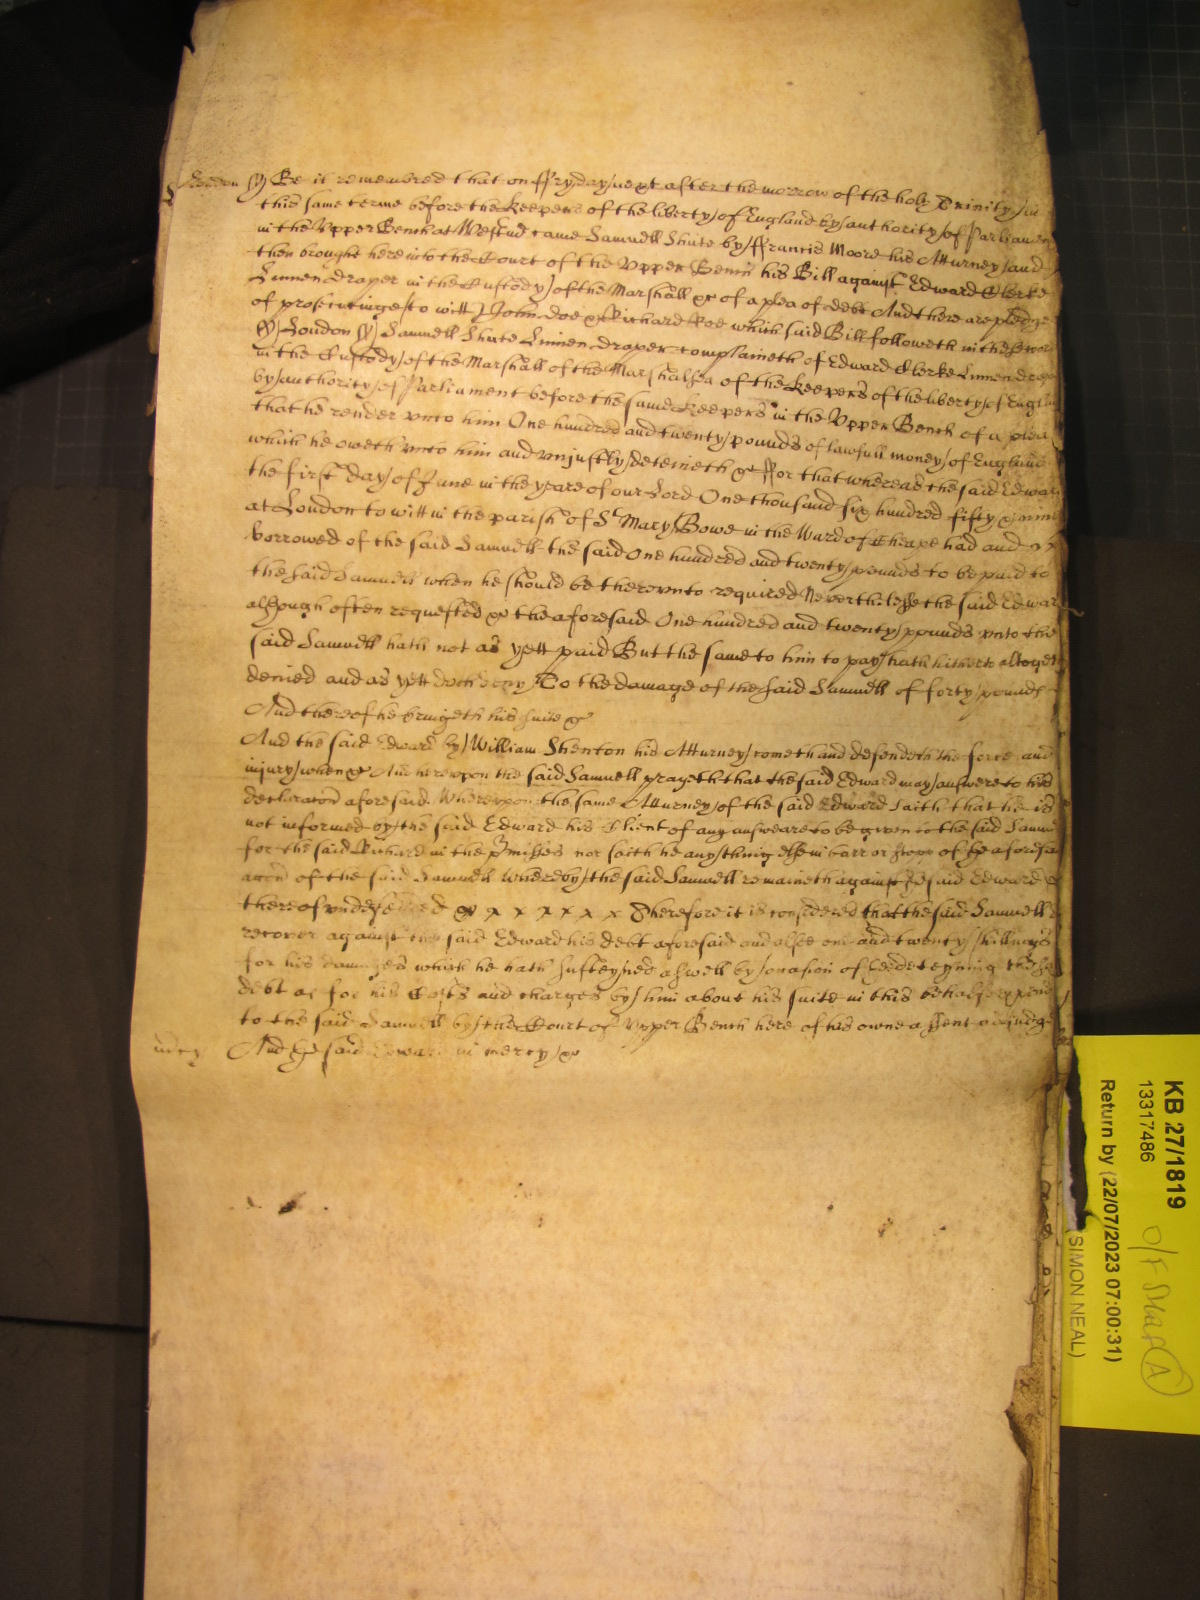 London ss Be it remembred that on ffryday next after the morrow of the holy Trinity in
this same terme before the keepers of the liberty of England by authority of Parliament
in the Upper Bench at Westmr came Samuell Shute by ffrancis Moore his Atturney and
then brought here into the Court of the Upper Bench his Bill against Edward Clerke
Linnen draper in the Custody of the Marshall &c of a plea of debt And there are pledges
of prosecutinge to witt John doe & Richard Roe which said Bill followeth in these words
ss London ss Samuell Shute Linnen draper complaineth of Edward Clerke Linnen drap
in the Custody of the Marshall of the Marshalsea of the keepers of the liberty of Engla
by authority of Parliament before the said keepers in the Upper Bench of a plea
that he render unto him One hundred and twenty pounds of lawfull money of England
which he oweth unto him and unjustly deteineth &c ffor that whereas the said Edwar
the first day of June in the yeare of our Lord One thousand six hundred fifty & nine
at London to witt in the parish of St Mary Bowe in the Ward of Cheape had and
borrowed of the said Samuell the said One hundred and twenty pounds to be paid to
the said Samuell when he should be thereunto required Neverthelesse the said Edwar
although often requested &c the aforesaid One hundred and twenty pounds unto the
said Samuell hath not as yett paid But the same to him to pay hath hitherto altoget
denied and as yett doth deny To the damage of the said Samuell of forty pounds
And thereof he bringeth his suite &c
And the said Edward by William Shenton his Atturney cometh and defendeth the force and
injury when &c And hereupon the said Samuell prayeth that the said Edward may answere to his
declaracon aforesaid. Whereupon the same Atturney of the said Edward saith that he is
not informed by the said Edward his Client of any answeare to be given to the said Samu
for the said Richard in the pmisses nor saith he anything else in barr or stopp of the aforesa
accon of the said Samuell whereby the said Samuell remaineth against the said Edward
thereof undefended &c x x x x x x Therefore it is considered that the said Samuell
recover against the said Edward his debt aforesaid and alsoe one and twenty shillings
for his damages which he hath susteyned aswell by occasion of the deteyning the
debt as for his Costs and charges by him about his suite in this behalfe expend
to the said Samuell by the Court of Upper Bench here of his owne assent adjudge
mcy And the said Edward in mercy &c
KB 27/1819
13317486
Return by (22/07/2023 07:00:31)
(SIMON NEAL)
A